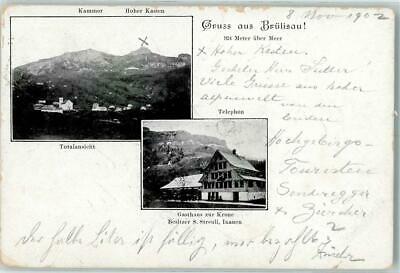 Kammor Hoher Kasten
Gruss aus Brülisau!
924 Meter über Meer
8 Nov 1902
x Hoher Kasten.
Geehrter Herr Sutter!
Viele Grüsse aus hoher
Alpenwelt von den
beiden
Hochgebirgs-
Touristen
Sonderegger
&
Zürcher
Totalansicht
Telephon
Gasthaus zur Krone
Besitzer S. Streuli, Inauen
Der halbe Liter ist fällig, wer bezahlt?
Zürcher